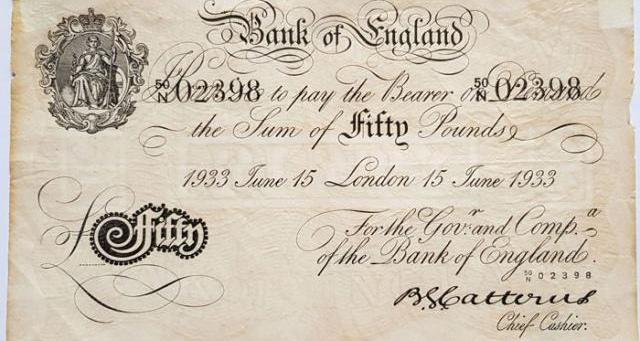 Bank of England
50/N 02398 to pay the Bearer on Demand 50/N 02398
the Sum of Fifty Pounds
1933 June 15 London 15 June 1933
£ Fifty
For the Govr. and Compa.
of the Bank of England.
50/N 02398
B.G. Catterns
Chief Cashier.